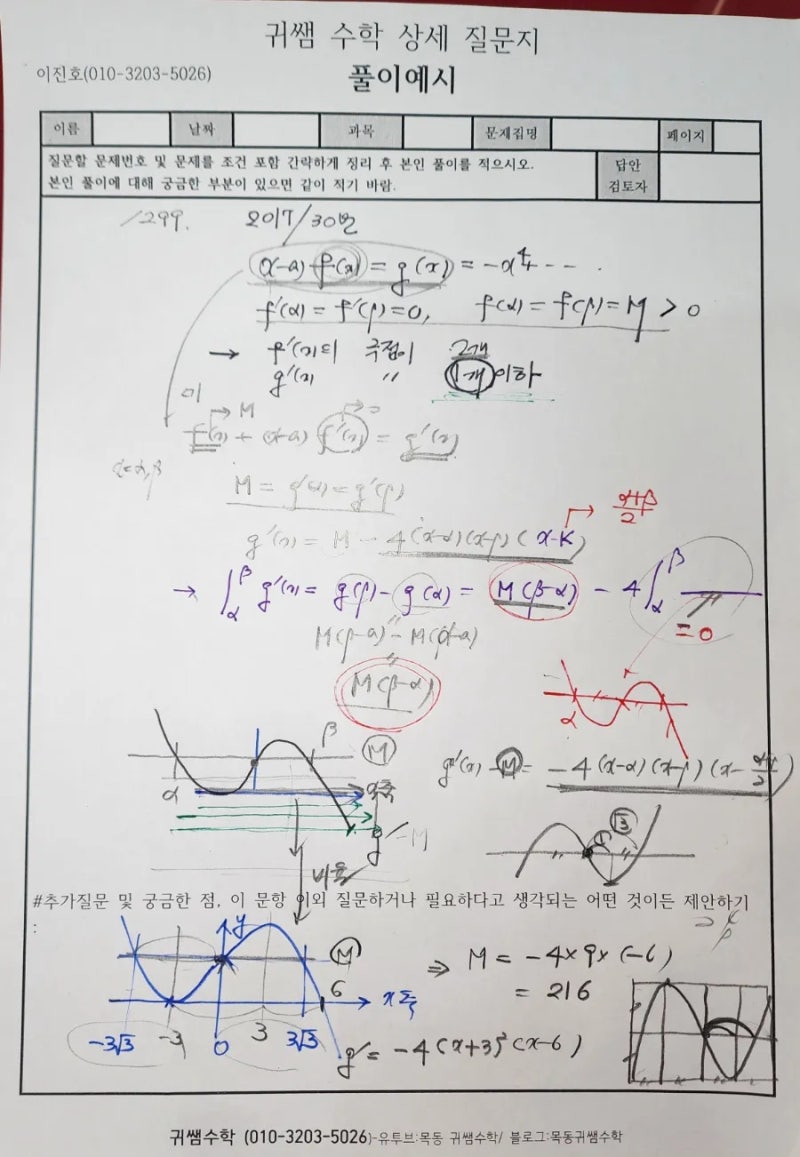 귀쌤 수학 상세 질문지
이진호(010-3203-5026)
풀이예시
이름 날짜 과목 문제집명 페이지
질문할 문제번호 및 문제를 조건 포함 간략하게 정리 후 본인 풀이를 적으시오.
본인 풀이에 대해 궁금한 부분이 있으면 같이 적기 바람.
답안
검토자
299. 2017/30번
(x-a) f(x) = g(x) = -x⁴+ - - .
f'(α) = f'(β) = 0, f(α) = f(β) = M > 0
→ f'(x)의 극점이 2개
g'(x) 〃 1개 이하
미
→ M
f(x) + (x-a) f'(x) = g'(x)
x=α,β
M = g'(α) = g'(β)
g'(x) = M - 4(x-α)(x-β)(x-K) → α+β/2
→ ∫αβ g'(x) = g(β) - g(α) = M(β-α) - 4∫αβ
= 0
M(β-a) - M(α-a)
〃
M(β-α)
α
β M
α x축
g'(x) - M = -4(x-α)(x-β)(x- α+β/2)
-M
① √3
비율
#추가질문 및 궁금한 점, 이 문항 이외 질문하거나 필요하다고 생각되는 어떤 것이든 제안하기
:
y
M
6 x축
-3√3 -3 0 3 3√3
⇒ M = -4×9×(-6)
= 216
g' = -4(x+3)²(x-6)
귀쌤수학 (010-3203-5026)-유투브:목동 귀쌤수학/ 블로그:목동귀쌤수학